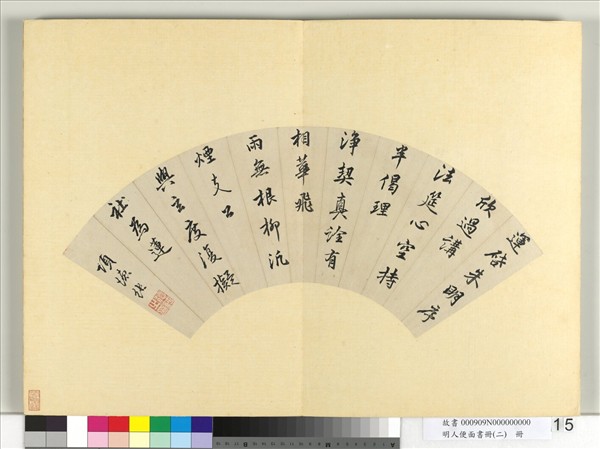 運啓朱明序
欣過講
法筵心空持
半偈理
淨契真詮有
相華飛
雨無根柳沉
煙支公
與玄度復擬
社為蓮
項德
故書 000909N000000000
明人便面書冊(二) 冊
15